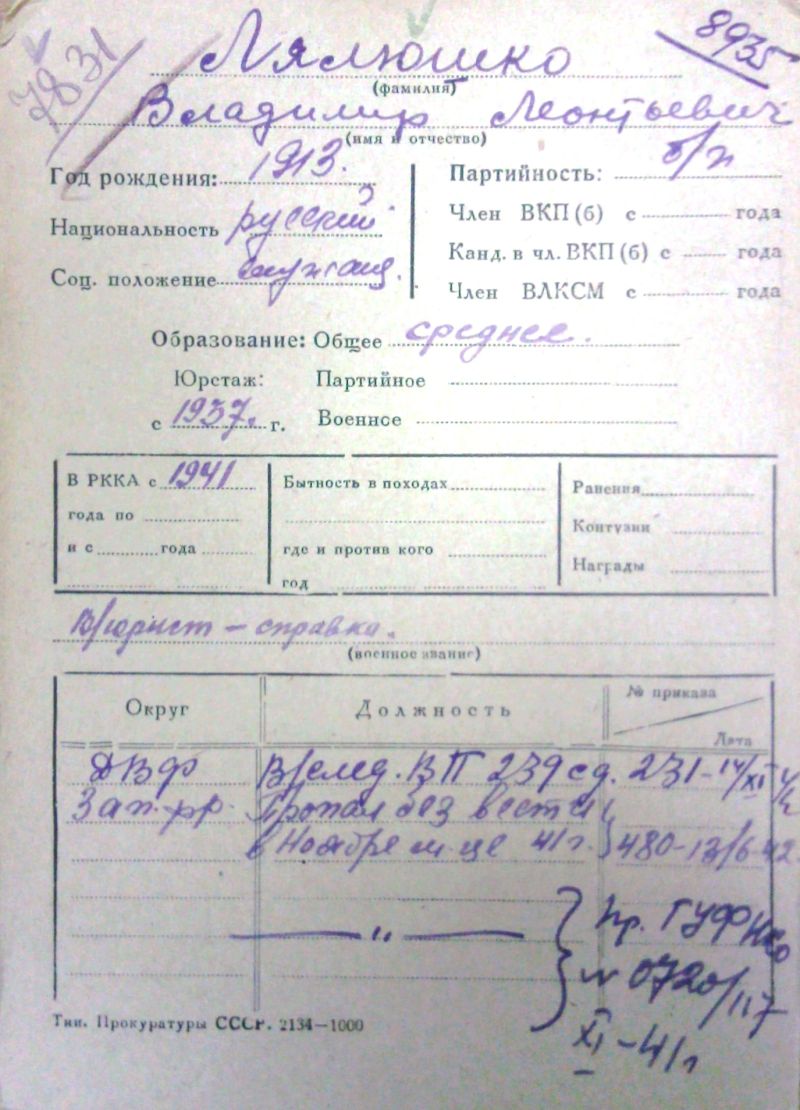 7831
8935
Лялюшко
(фамилия)
Владимир Леонтьевич
(имя и отчество)
Год рождения: 1913.
Партийность: б/п
Национальность русский
Член ВКП(б) с года
Соц. положение служащ.
Канд. в чл. ВКП(б) с года
Член ВЛКСМ с года
Образование: Общее среднее.
Юрстаж: Партийное
с 1937. г. Военное
В РККА с 1941
года по
и с года
Бытность в походах
где и против кого
год
Ранения
Контузии
Награды
В/юрист – справка.
(военное звание)
Округ Должность № приказа
Дата
ДВФ В/след. ВП 239 сд. 231-14/XI
Зап. фр. Пропал без вести
в Ноябре м-це 41 г. } 480-13/6-42
— " — } Пр. ГУФ НКО
№ 0720/117
XI-41 г
Тип. Прокуратуры СССР. 2134—1000